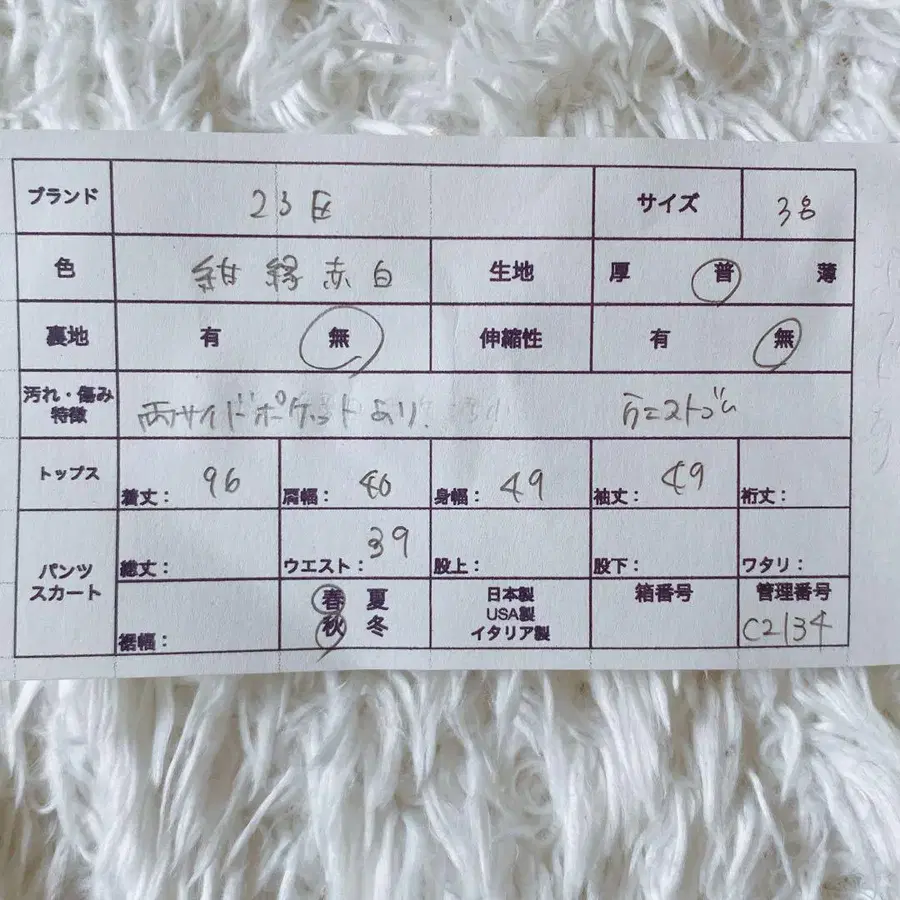 ブランド 23区 サイズ 38
色 紺 緑 赤 白 生地 厚 普 薄
裏地 有 無 伸縮性 有 無
汚れ・傷み
特徴 両サイドポケットあり.
トップス 着丈: 96 肩幅: 40 身幅: 49 袖丈: 49 裄丈:
パンツ
スカート
総丈: ウエスト: 39 股上: 股下: ワタリ:
裾幅:
春 夏
秋 冬
日本製
USA製
イタリア製
箱番号
管理番号
C2134